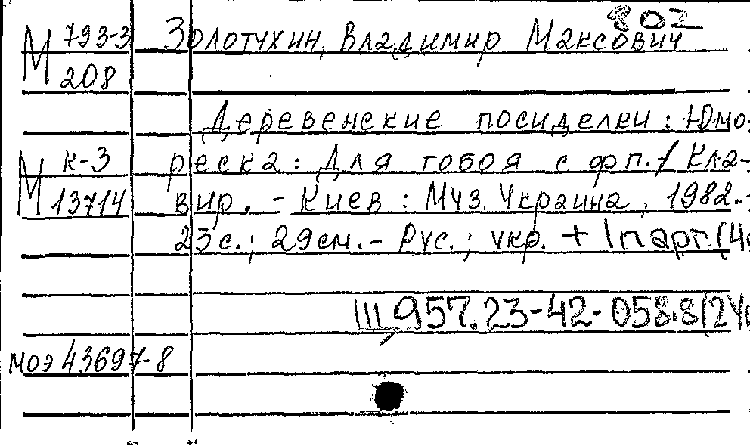 802
М 793-3 Золотухин, Владимир Максович
208
Деревенские посиделки: Юмо-
М К-3 реска: Для гобоя с фп. / Кла-
13714 вир. - Киев: Муз. Украина, 1982.-
23с.; 29см.- Рус.; укр. + 1 парт. (4с
957.23-42-058.8(2Ук
моэ 43697-8